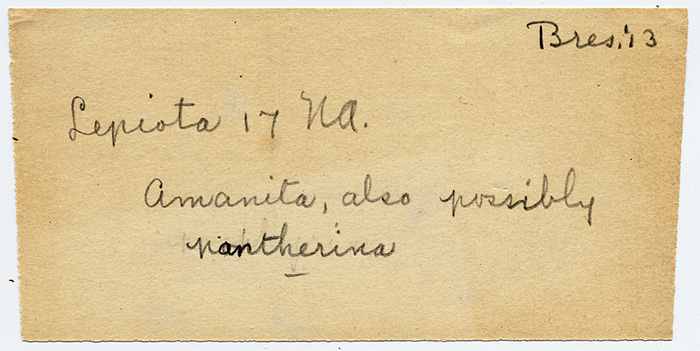 Bres. '13
Lepiota 17 NA.
Amanita, also possibly
pantherina